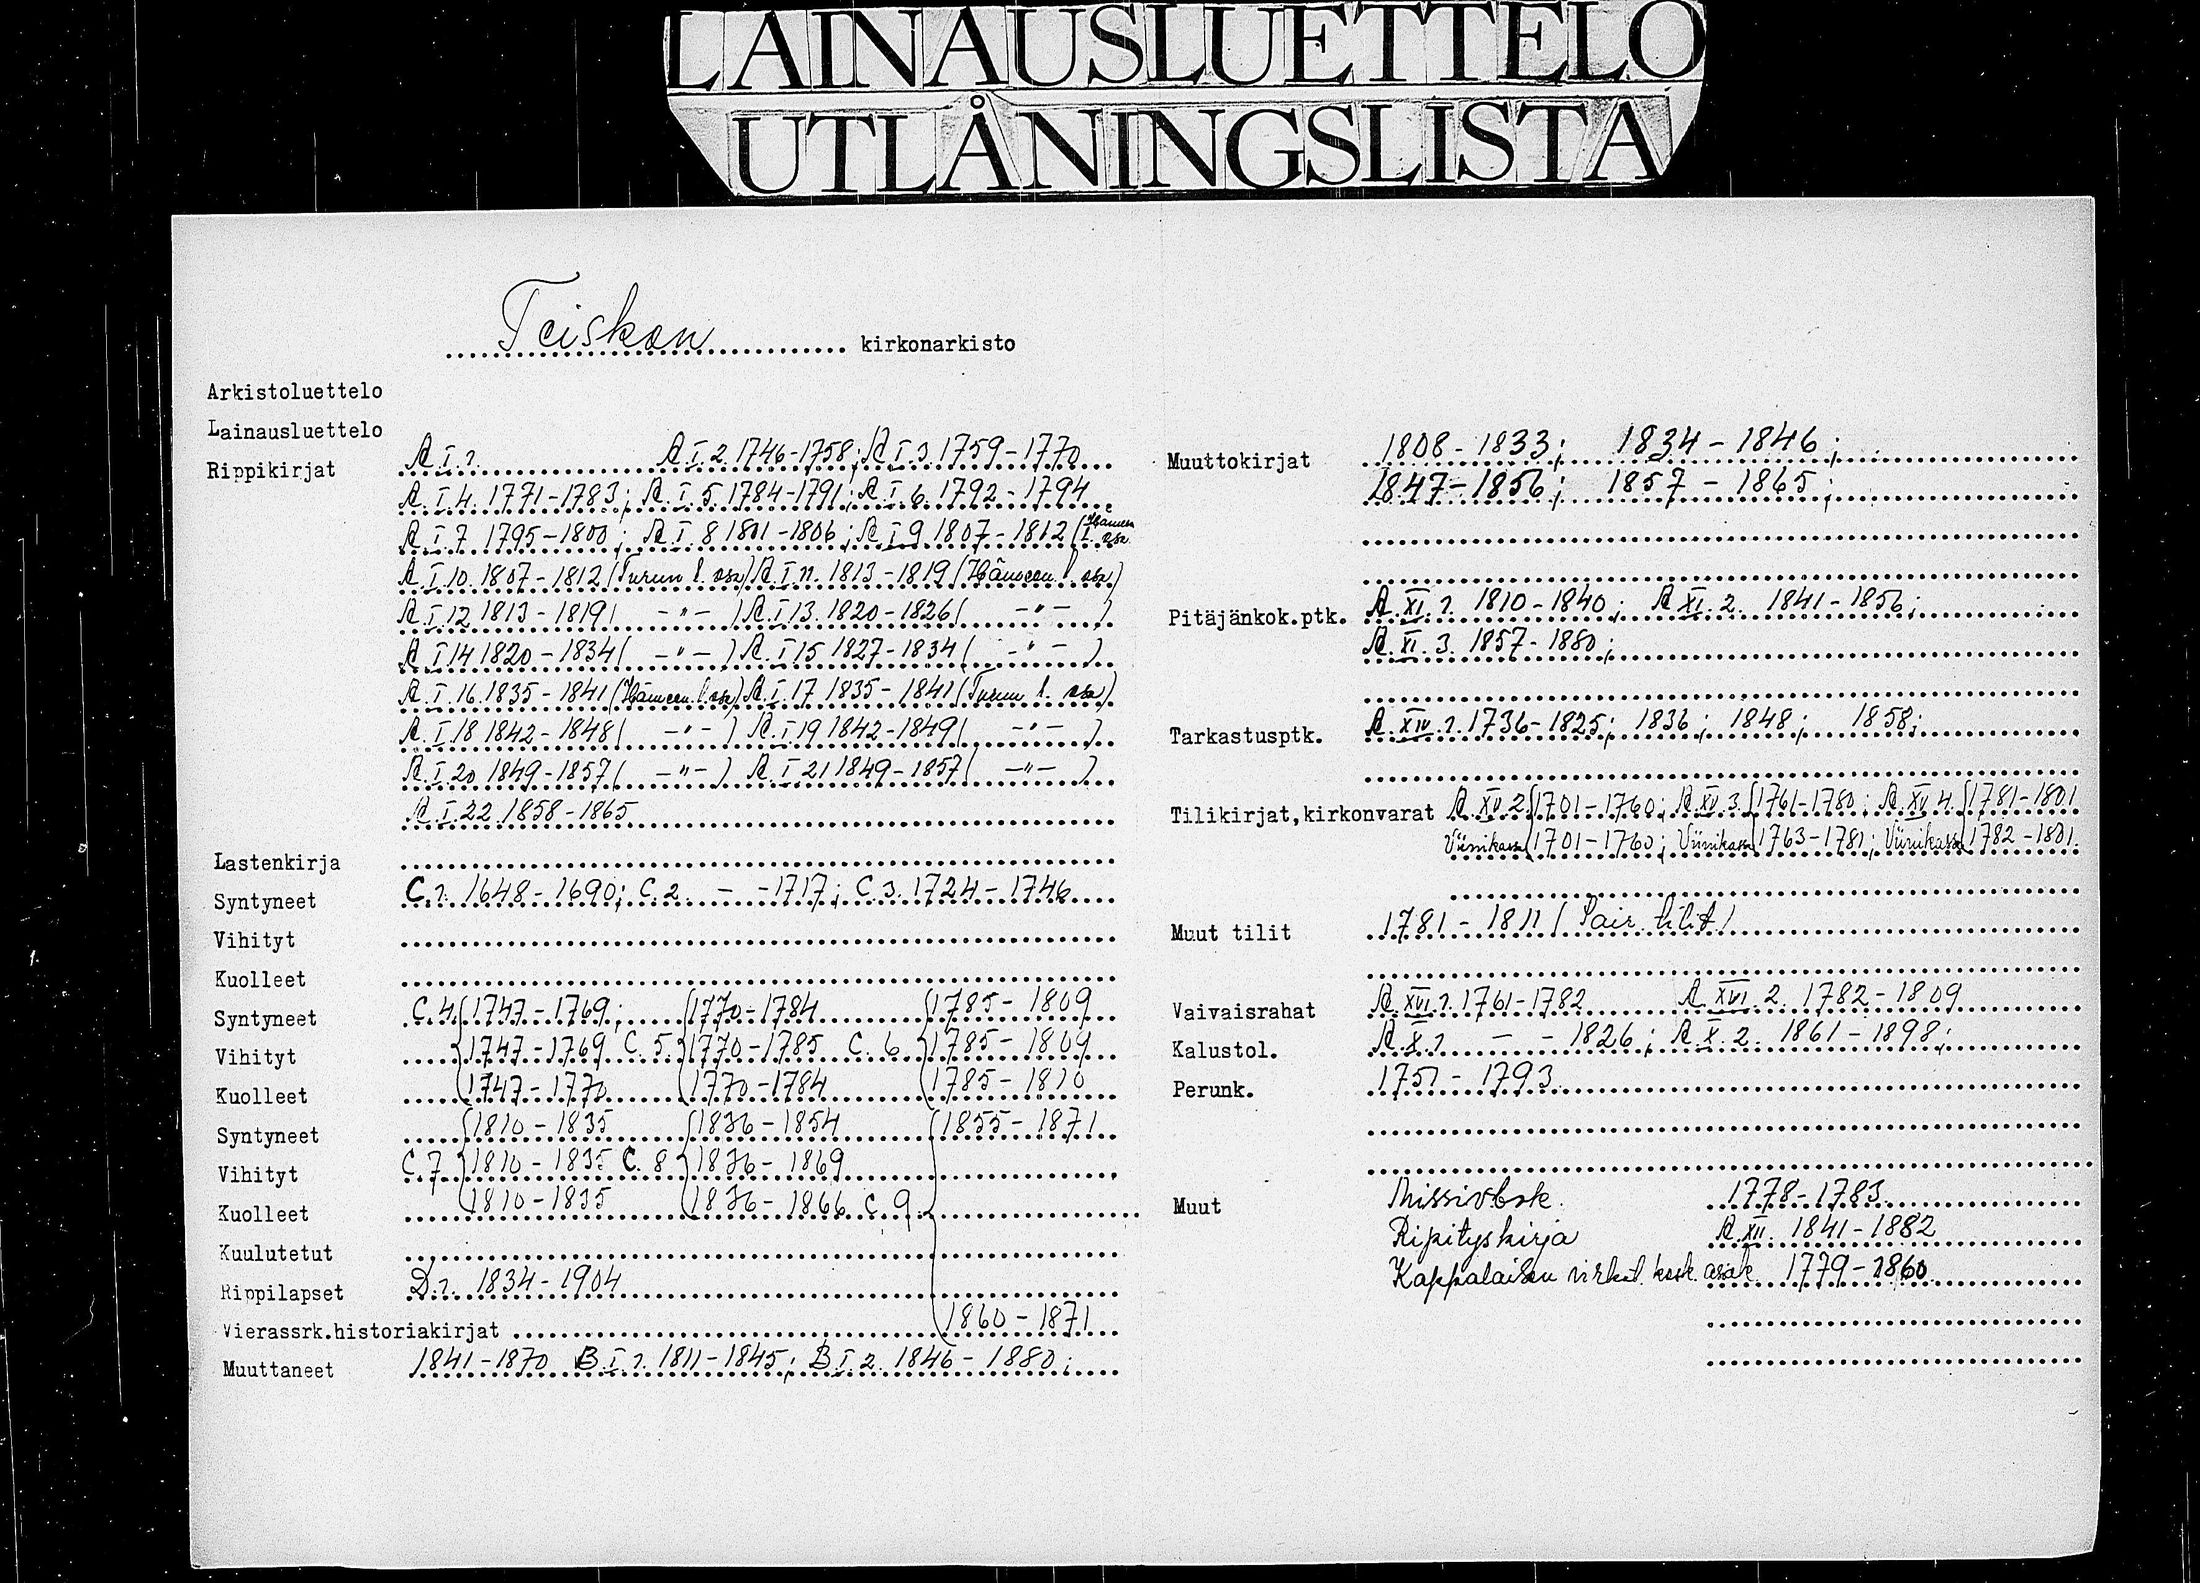 LAINAUSLUETTELO
UTLÅNINGSLISTA
Teiskon kirkonarkisto
Arkistoluettelo
Lainausluettelo
Rippikirjat A.I.1. A.I.2. 1746-1758; A.I.3. 1759-1770
A.I.4. 1771-1783; A.I.5. 1784-1791; A.I.6. 1792-1794
A.I.7 1795-1800; A.I.8 1801-1806; A.I.9 1807-1812 (Hämeen l. osa
A.I.10. 1807-1812 (Turun l. osa) A.I.11. 1813-1819 (Hämeen l. osa)
A.I.12 1813-1819 ( -"- ) A.I.13. 1820-1826 ( -"- )
A.I.14 1820-1834 ( -"- ) A.I.15 1827-1834 ( -"- )
A.I.16. 1835-1841 (Hämeen l. osa) A.I.17 1835-1841 (Turun l. osa)
A.I.18 1842-1848 ( -"- ) A.I.19 1842-1849 ( -"- )
A.I.20 1849-1857 ( -"- ) A.I.21 1849-1857 ( -"- )
A.I.22 1858-1865
Lastenkirja
Syntyneet C.1. 1648-1690; C.2. - -1717; C.3. 1724-1746
Vihityt
Kuolleet
Syntyneet C.4 (1747-1769; (1770-1784 (1785-1809
Vihityt 1747-1769 C.5. 1770-1785 C.6. 1785-1809
Kuolleet 1747-1770 1770-1784 1785-1810
Syntyneet (1810-1835 (1836-1854 (1855-1871
Vihityt C.7 1810-1835 C.8 1836-1869
Kuolleet 1810-1835 1836-1866 C.9
Kuulutetut
Rippilapset D.1. 1834-1904
Vierassrk.historiakirjat 1860-1871
Muuttaneet 1841-1870 B.I.1. 1811-1845; B.I.2. 1846-1880;
Muuttokirjat 1808-1833; 1834-1846;
1847-1856; 1857-1865;
Pitäjänkok.ptk. A.XI.1. 1810-1840; A.XI.2. 1841-1856;
A.XI.3. 1857-1880;
Tarkastusptk. A.XIV.1. 1736-1825; 1836; 1848; 1858;
Tilikirjat,kirkonvarat A.XV.2. (1701-1760; A.XV.3. (1761-1780; A.XV.4. (1781-1801
Viinikassa 1701-1760; Viinikassa 1763-1781; Viinikassa 1782-1801.
Muut tilit 1781-1811 ( tilit)
Vaivaisrahat A.XVI.1. 1761-1782 A.XVI.2. 1782-1809
Kalustol. A.X.1 - - 1826; A.X.2. 1861-1898;
Perunk. 1751-1793
Muut Missivbok. 1778-1783
Ripityskirja A.XII. 1841-1882
Kappalaisen virkat. kosk. asiak. 1779-1860